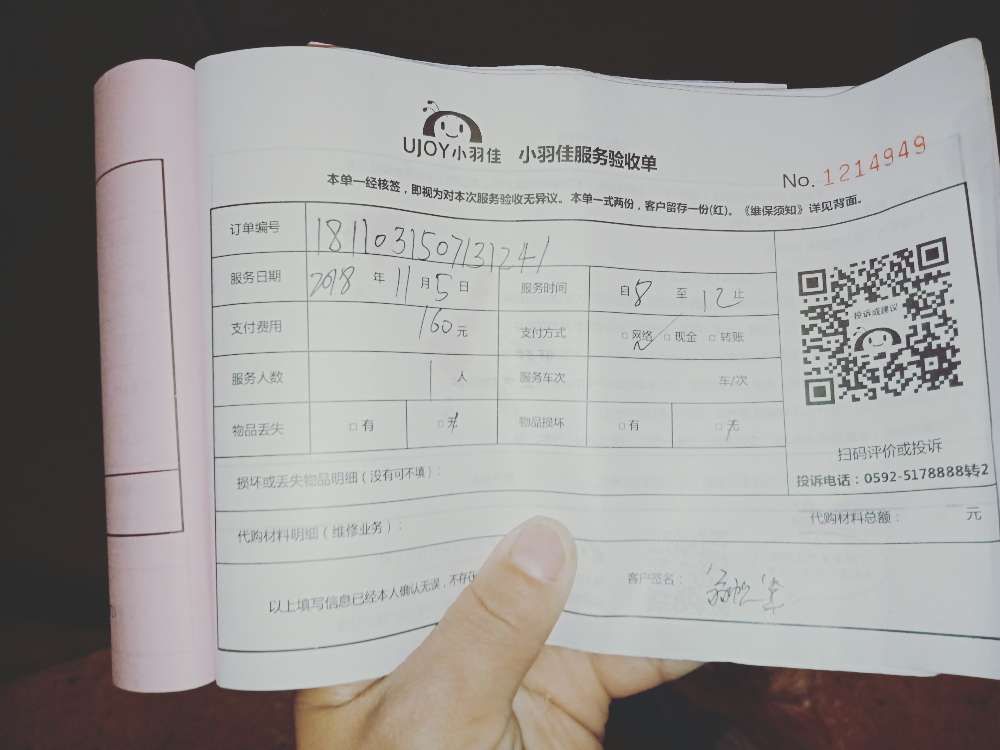 UJOY小羽佳 小羽佳服务验收单
No. 1214949
本单一经核签，即视为对本次服务验收无异议。本单一式两份，客户留存一份(红)。《维保须知》详见背面。
订单编号 1811031507131241
服务日期 2018 年 11 月 5 日 服务时间 自 8 至 12 止
投诉或建议
支付费用 160 元 支付方式 □网络 □现金 □转账
服务人数 1 人 服务车次 车/次
物品丢失 □有 □无 物品损坏 □有 □无
扫码评价或投诉
投诉电话：0592-5178888转2
损坏或丢失物品明细（没有可不填）：
代购材料明细（维修业务）： 代购材料总额： 元
以上填写信息已经本人确认无误，不存在 客户签名：